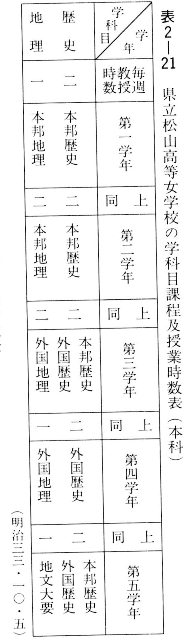 表2—21 県立松山高等女学校の学科目課程及授業時数表(本科)
学年 学科目 毎週教授時数 第一学年 同上 第二学年 同上 第三学年 同上 第四学年 同上 第五学年
歴史 二 本邦歴史 二 本邦歴史 二 本邦歴史 外国歴史 二 外国歴史 二 本邦歴史 外国歴史
地理 一 本邦地理 二 本邦地理 二 外国地理 一 外国地理 一 地文大要
(明治三三・一〇・五)